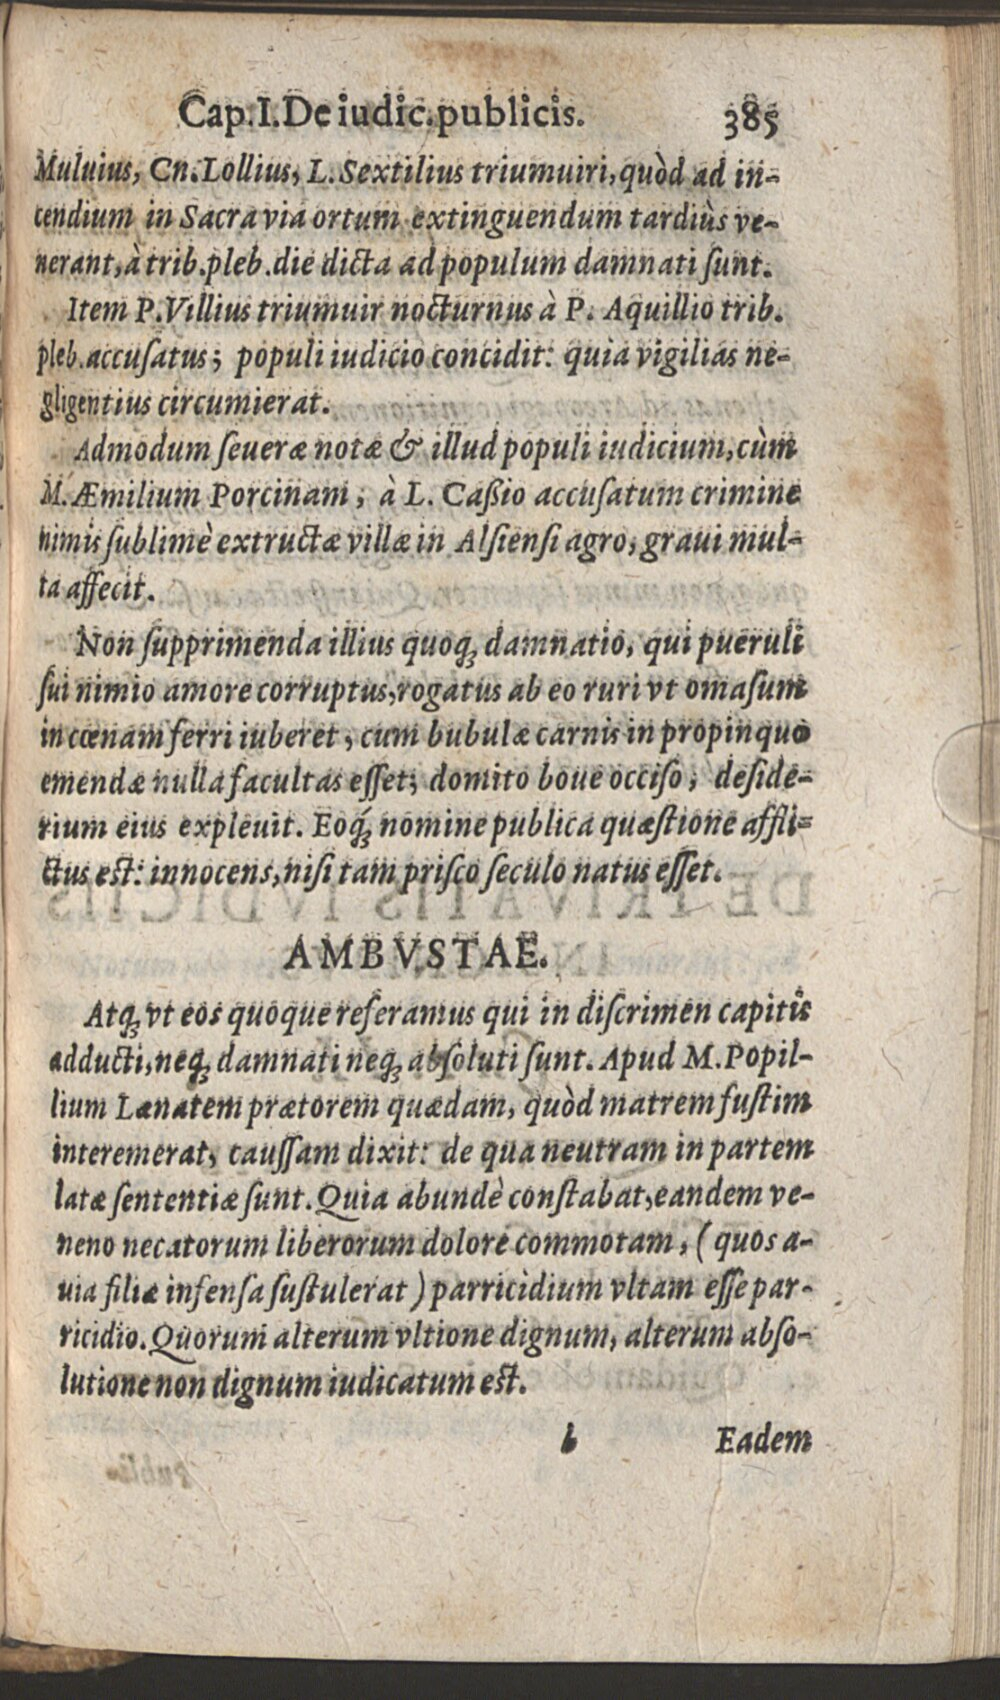 Cap.I.De iudic.publicis. 385
Muluius, Cn.Lollius, L.Sextilius triumuiri,quòd ad in-
cendium in Sacra via ortum extinguendum tardiùs ve-
nerant, à trib.pleb.die dicta ad populum damnati ſunt.
Item P.Villius triumuir nocturnus à P. Aquillio trib.
pleb.accuſatus; populi iudicio concidit: quia vigilias ne-
gligentius circumierat.
Admodum ſeueræ notæ & illud populi iudicium,cùm
M.Æmilium Porcinam, à L. Caßio accuſatum crimine
nimis ſublimè extructæ villæ in Alſienſi agro, graui mul-
ta affecit.
Non ſupprimenda illius quoq́; damnatio, qui pueruli
ſui nimio amore corruptus,rogatus ab eo ruri vt omaſum
in cœnam ferri iuberet, cum bubulæ carnis in propinquo
emendæ nulla facultas eſſet; domito boue occiſo, deſide-
rium eius expleuit. Eoq́; nomine publica quæſtione affli-
ctus est: innocens,niſi tam priſco ſeculo natus eſſet.
AMBVSTAE.
Atq; vt eos quoque referamus qui in diſcrimen capitis
adducti,neq; damnati neq; abſoluti ſunt. Apud M.Popil-
lium Lænatem prætorem quædam, quòd matrem fuſtim
interemerat, cauſſam dixit: de qua neutram in partem
latæ ſententiæ ſunt. Quia abundè conſtabat,eandem ve-
neno necatorum liberorum dolore commotam, (quos a-
uia filiæ infenſa ſuſtulerat) parricidium vltam eſſe par-
ricidio. Quorum alterum vltione dignum, alterum abſo-
lutione non dignum iudicatum eſt.
b Eadem